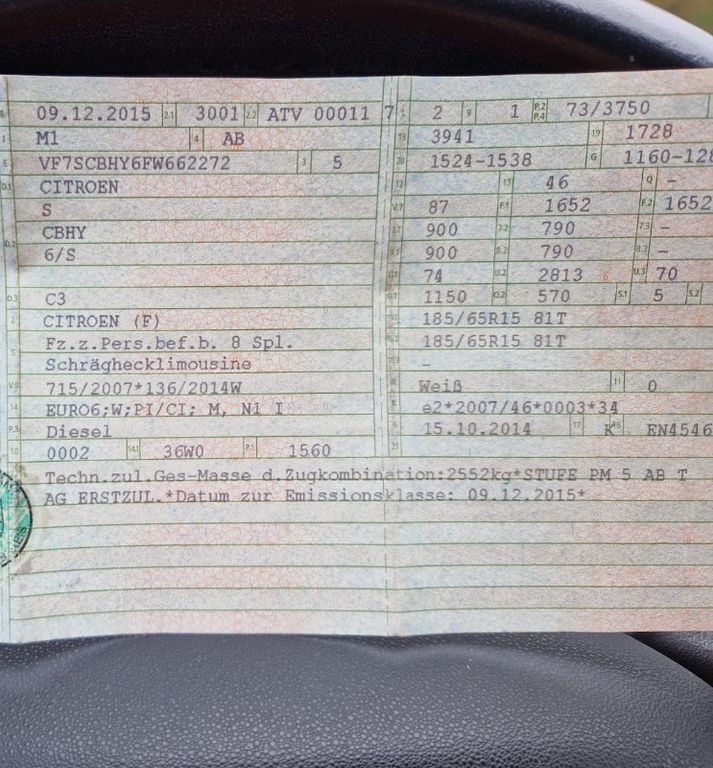 B 09.12.2015 2.1 3001 2.2 ATV 00011 7 L 2 9 1 P.2 P.4 73/3750
J M1 4 AB 18 3941 19 1728
E VF7SCBHY6FW662272 3 5 20 1524-1538 G 1160-128
D.1 CITROEN 12 13 46 Q –
S V.7 87 F.1 1652 F.2 1652
D.2 CBHY 7.1 900 7.2 790 7.3 –
6/S 8.1 900 8.2 790 8.3 –
U.1 74 U.2 2813 U.3 70
D.3 C3 O.1 1150 O.2 570 S.1 5 S.2
2 CITROEN (F) 15.1 185/65R15 81T
5 Fz.z.Pers.bef.b. 8 Spl. 15.2 185/65R15 81T
Schräghecklimousine 15.3 –
V.9 715/2007*136/2014W R Weiß 11 0
14 EURO6;W;PI/CI; M, N1 I K e2*2007/46*0003*34
P.3 Diesel 6 15.10.2014 17 K 16 EN4546
10 0002 14.1 36W0 P.1 1560 21
Techn.zul.Ges-Masse d.Zugkombination:2552kg*STUFE PM 5 AB T
AG ERSTZUL.*Datum zur Emissionsklasse: 09.12.2015*